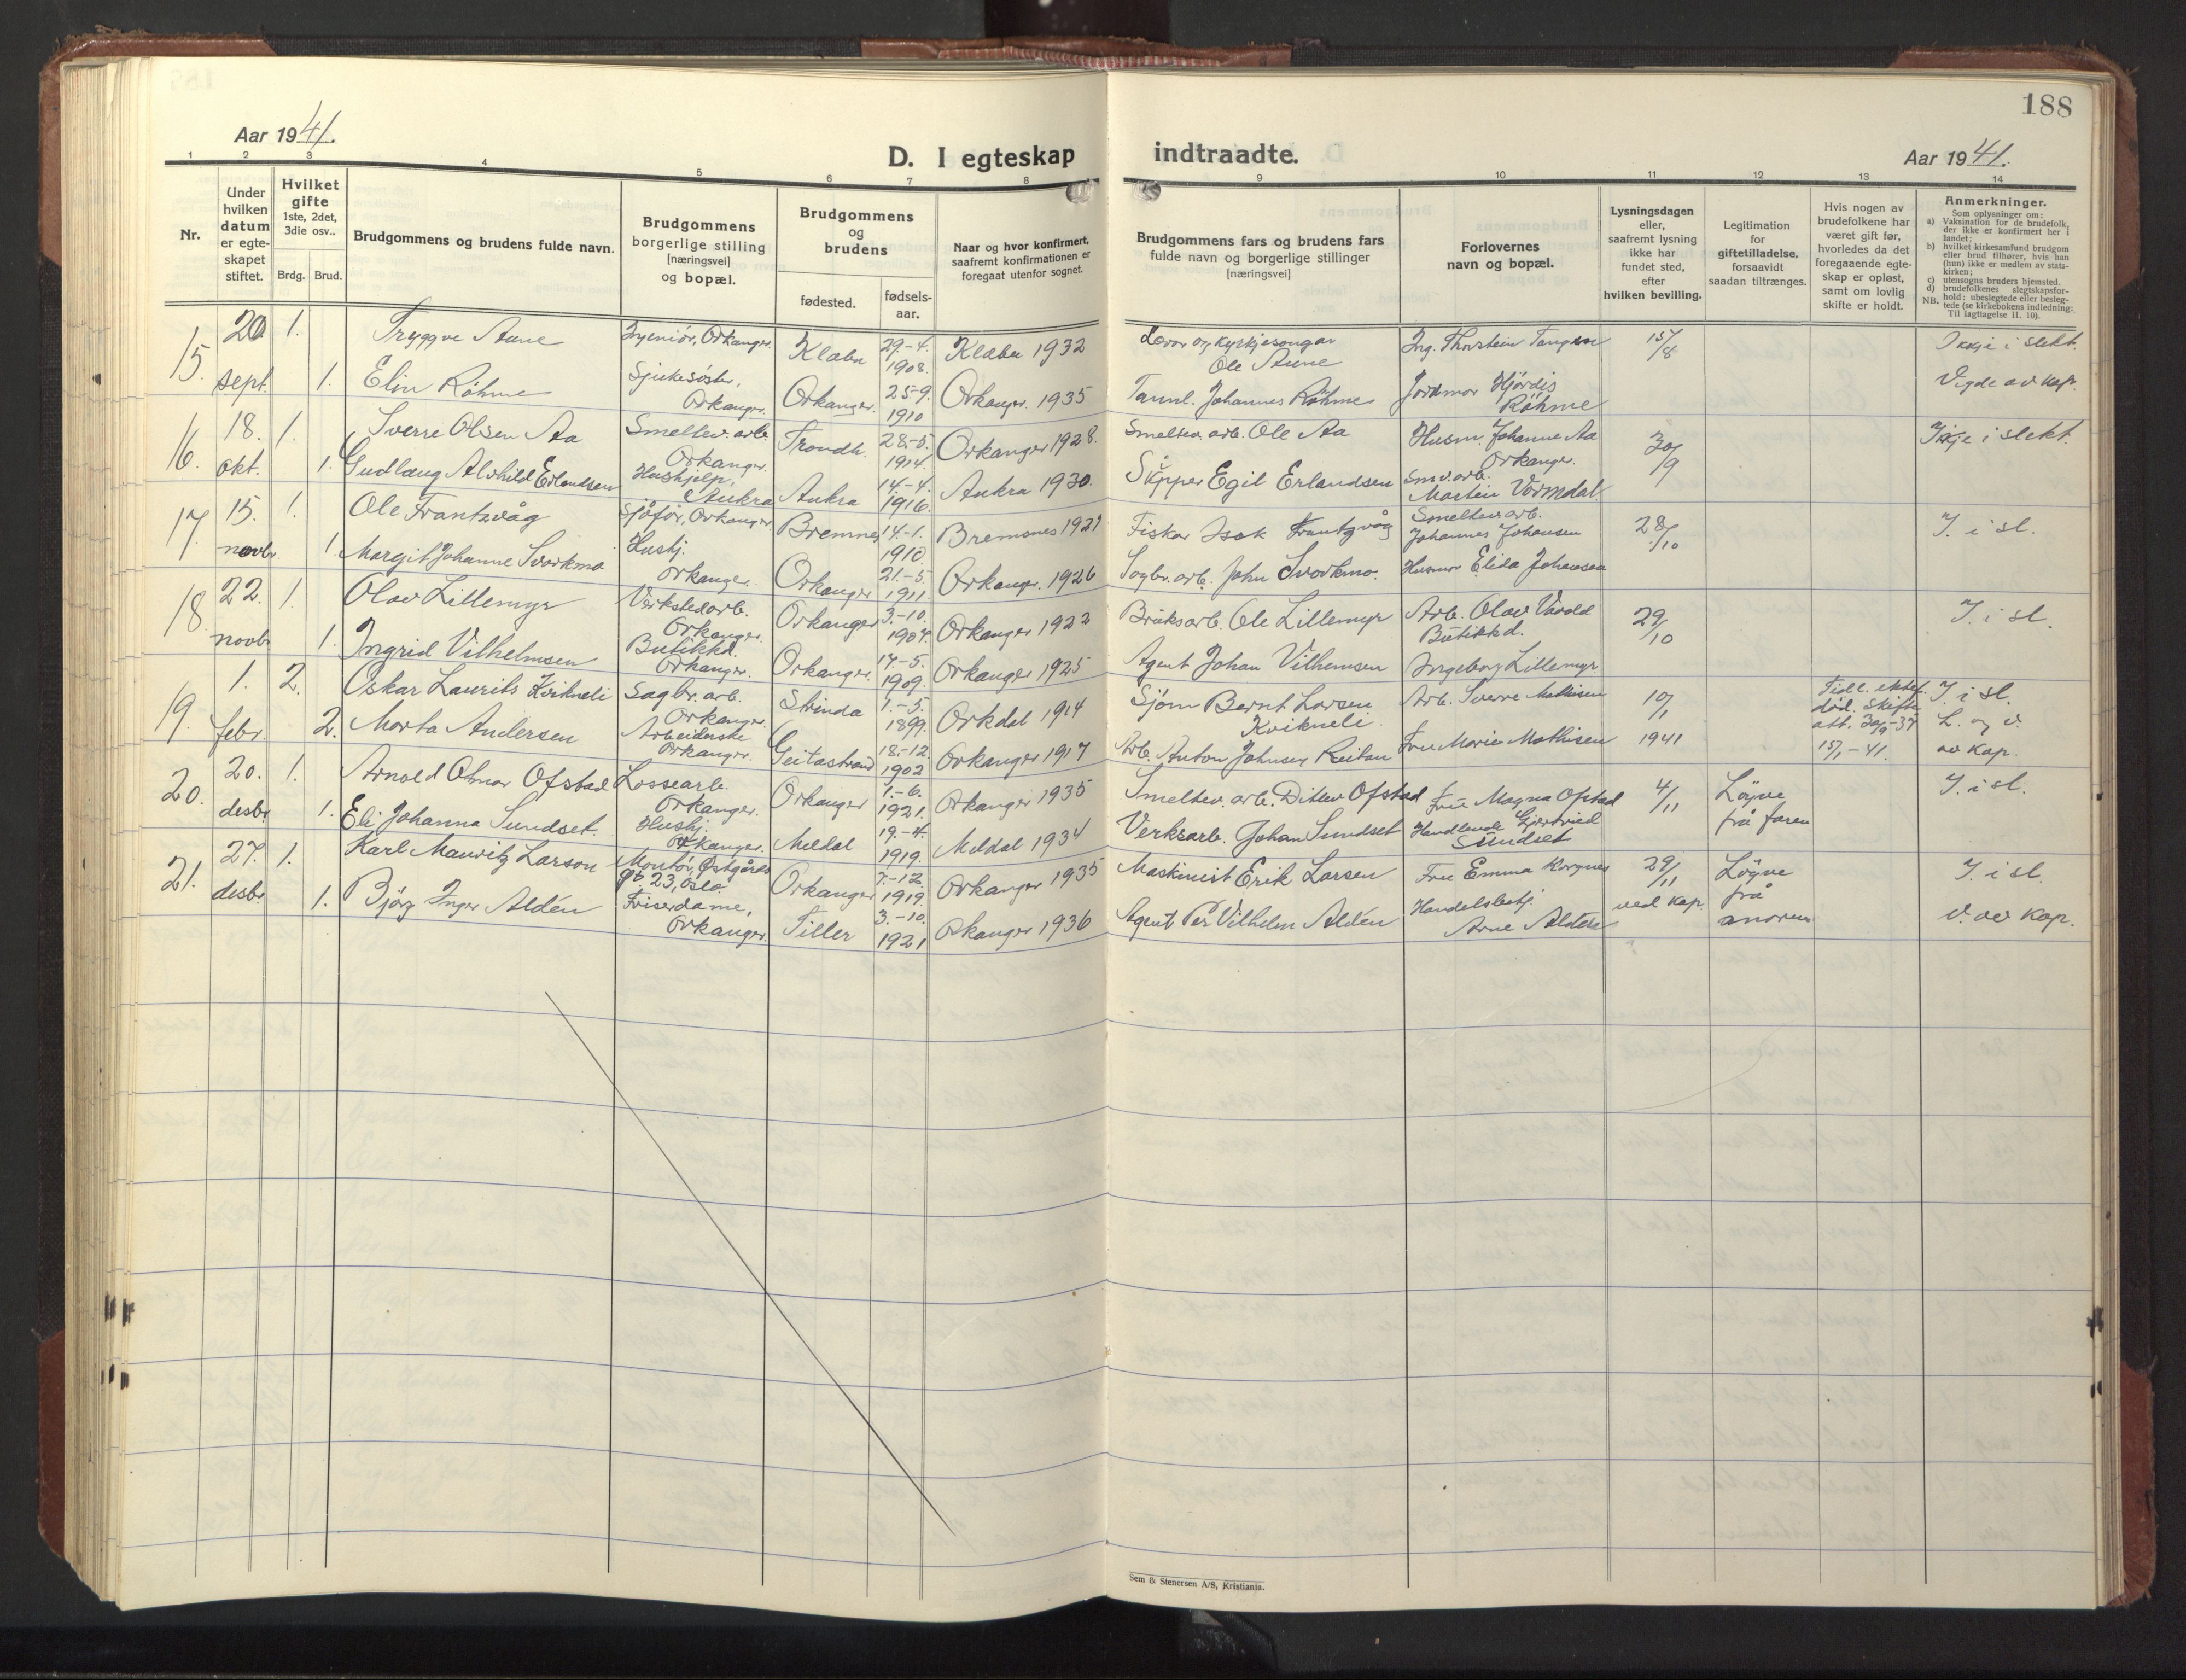 188
Aar 1941.
D. I egteskap indtraadte.
Aar 1941.
1 2 3 4 5 6 7 8 9 10 11 12 13 14
Nr.
Under hvilken datum er egte- skapet stiftet.
Hvilket gifte 1ste, 2det, 3die osv..
Brdg. Brud.
Brudgommens og brudens fulde navn.
Brudgommens borgerlige stilling [næringsvei] og bopæl.
Brudgommens og brudens
fødested.
fødsels- aar.
Naar og hvor konfirmert, saafremt konfirmationen er foregaat utenfor sognet.
Brudgommens fars og brudens fars fulde navn og borgerlige stillinger [næringsvei]
Forlovernes navn og bopæl.
Lysningsdagen eller, saafremt lysning ikke har fundet sted, efter hvilken bevilling.
Legitimation for giftetilladelse, forsaavidt saadan tiltrænges.
Hvis nogen av brudefolkene har været gift før, hvorledes da det foregaaende egte- skap er opløst, samt om lovlig skifte er holdt.
Anmerkninger.
Som oplysninger om:
a) Vaksination for de brudefolk, der ikke er konfirmert her i landet;
b) hvilket kirkesamfund brudgom eller brud tilhører, hvis han (hun) ikke er medlem av stats- kirken;
c) utensogns bruders hjemsted.
d) brudefolkenes slegtskapsfor- hold: ubeslegtede eller besleg- tede (se kirkebokens indledning:
NB. Til iagttagelse II. 10).
15. 20 sept. 1. Tryggve Aune Ingeniør, Orkanger. Klæbu 29-4. 1908. Klæbu 1932 Lærar og kyrkjesongar Ole Aune Ing. Thorstein Tangen 15/8 Ikkje i slekt.
1. Elin Röhme Sjukesøster, Orkanger. Orkanger. 25-9. 1910 Orkanger. 1935 Tannl. Johannes Röhme Jordmor Hjördis Röhme Vigde av kap.
16. 18. okt. 1. Sverre Olsen Aa Smeltev. arb. Orkanger. Trondh. 28-5. 1914. Orkanger 1928. Smeltev. arb. Ole Aa Husm. Johanne Aa Orkanger. 30/9 Ikkje i slekt.
1. Gudlaug Alvhild Erlandsen Hushjelp, Aukra Aukra 14-4. 1916. Aukra 1930. Skipper Egil Erlandsen Smv. arb. Martin Vormdal
17. 15. novbr. 1. Ole Frantzvåg Sjåför, Orkanger Bremnes 14.-1. 1910. Bremsnes 1927 Fiskar Isak Frantzvåg Smeltev. arb. Johannes Johansen 28/10 I. i sl.
1. Margit Johanne Svorkmo Hushj. Orkanger. Orkanger 21.-5. 1911. Orkanger. 1926 Sagbr. arb. John Svorkmo. Husmor Elida Johansen
18. 22. novbr. 1. Olav Lillemyr Verkstedarb. Orkanger. Orkanger 3.-10. 1904. Orkanger 1922 Bruksarb. Ole Lillemyr Arb. Olav Vavold 29/10 I. i sl.
1. Ingrid Vilhelmsen Butikkd. Orkanger. Orkanger. 17.-5. 1909. Orkanger 1925 Agent Johan Vilhemsen Butikkd. Ingeborg Lillemyr
19. 1. febr. 2. Oskar Laurits Kvikneli Sagbr. arb. Orkanger. Strinda 1.-5. 1899. Orkdal 1914 Sjöm Bernt Larsen Kvikneli. Arb. Sverre Mathisen 10/1 1941 Tidl. ektef. död. Skifte att. 30/9-37 I. i sl.
2. Marta Andersen Arbeiderske Orkanger. Geitastrand 18.-12. 1902 Orkanger 1917 Arb. Anton Johnsen Reitan Fru Marie Mathisen 15/1-41. L. og v. av kap.
20. 20. desbr. 1. Arnold Otmar Ofstad Lossearb. Orkanger. Orkanger 1.-6. 1921. Orkanger 1935 Smeltev. arb. Ditlev Ofstad Fru Magna Ofstad 4/11 Löyve frå faren I. i sl.
1. Eli Johanna Sundset. Hushj. Orkanger. Meldal 19.-4. 1919. Meldal 1934 Verksarb. Johan Sundset Handlende Gjertrud Sundset
21. 27. desbr. 1. Karl Mauritz Larson Montör, Østgårds gt. 23, Oslo. Orkanger 7.-12. 1919. Orkanger 1935 Maskinist Erik Larsen Fru Emma Korgnes 29/11 ved kap. Löyve frå moren I. i sl.
1. Bjørg Inger Aldén Friserdame, Orkanger. Tiller 3.-10. 1921 Orkanger 1936 Agent Per Vilhelm Aldén Handelsbetj. Arne Aldén v. av kap.
Sem & Stenersen A/S, Kristiania.